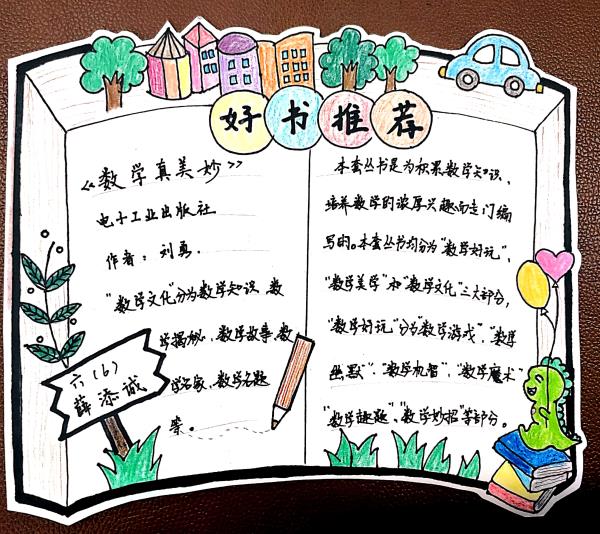 好书推荐
《数学真美妙》
电子工业出版社
作者：刘勇.
"数学文化"分为数学知识、数
学揭秘、数学故事、数
学名家、数学名题
等。
六(6)
薛添诚
本套丛书是为积累数学知识、
培养数学的浓厚兴趣而专门编
写的。本套丛书均分为"数学好玩"、
"数学美学"和"数学文化"三大部分，
"数学好玩"分为"数学游戏"、"数学
幽默"、"数学机智"、"数学魔术"
"数学趣题"、"数学妙招"等部分。